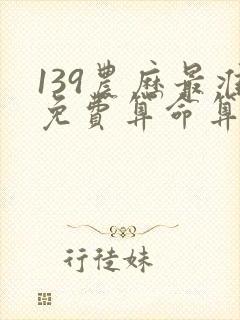 139農历最准
免費算命算
行徒妹